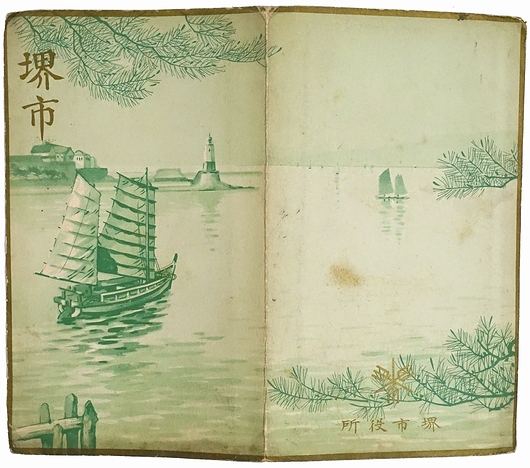 堺市
堺市役所